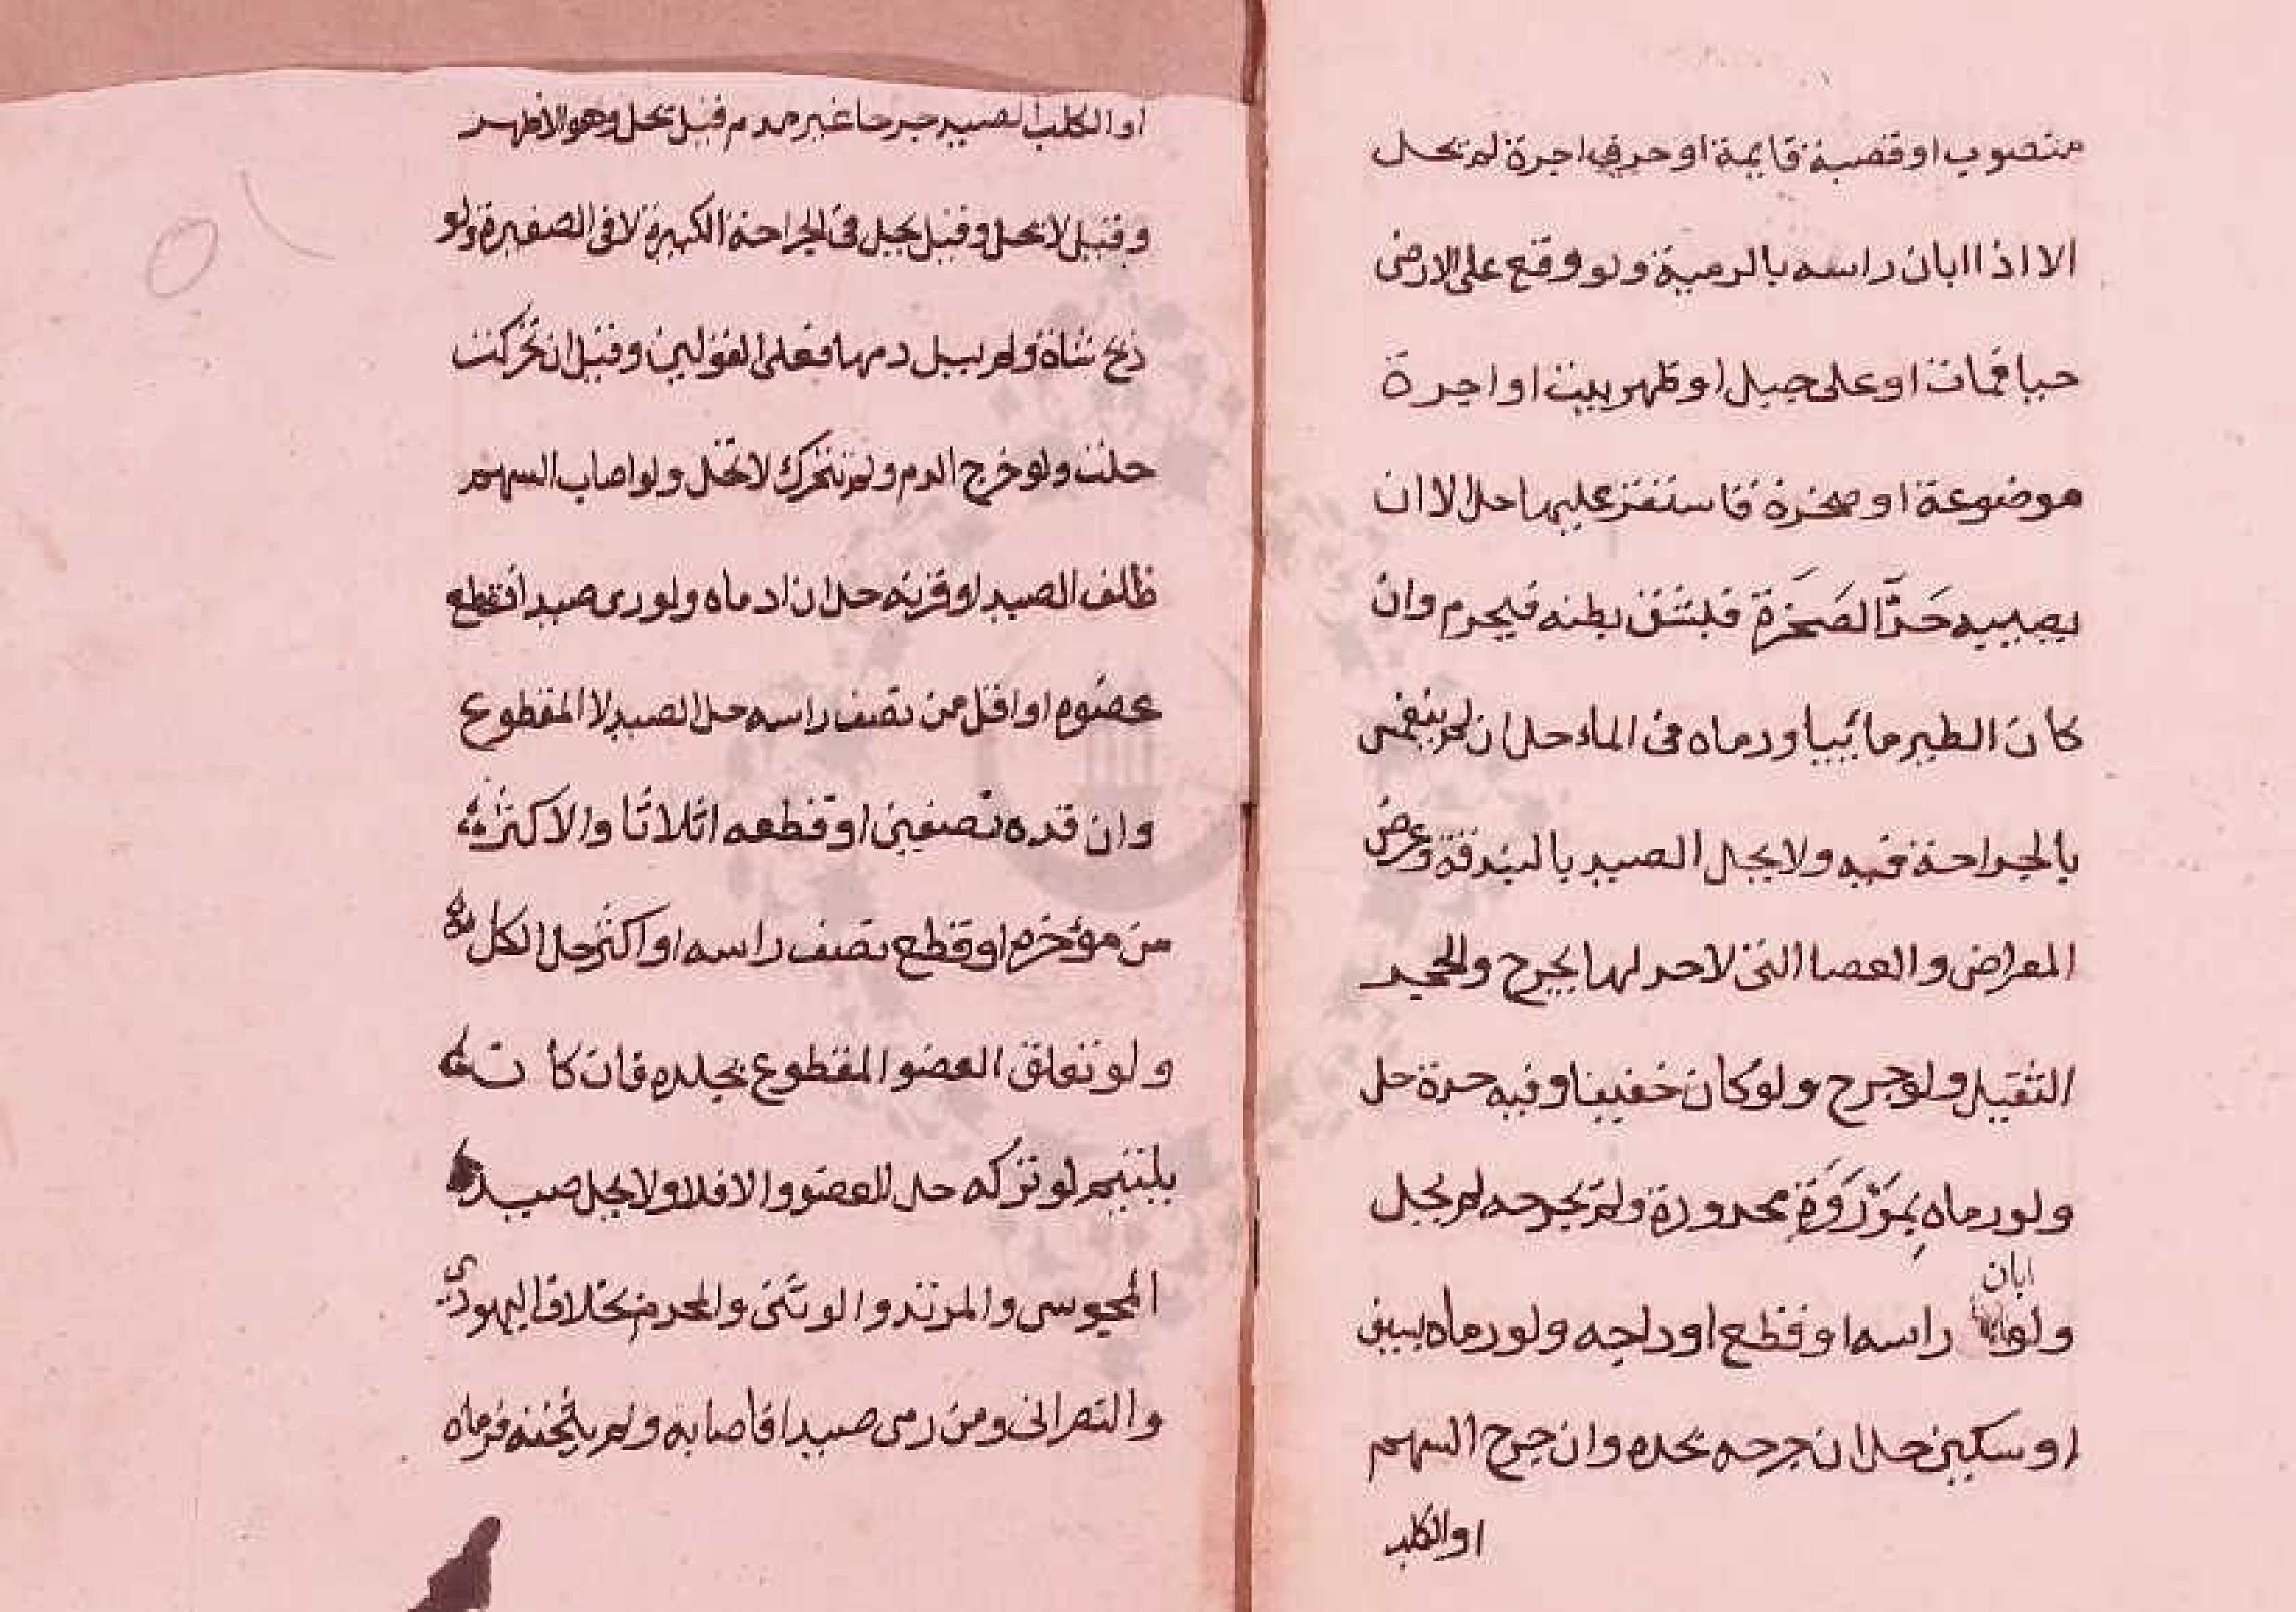 منصوب او قصبة قايمة او حرف اجرة لم تحل
الا اذا ابان راسه بالرمية ولو وقع على الارض
حيا فمات او على جبل او ظهر بيت او اجرة
موضوعة او صخرة فاستقر عليها حل الا ان
يصيبه حَدَّ الصَخرَة فيشق بطنه فيحرم وان
كان الطير مائييا ورماه فى الماء حل ان لم ينغمس
بالجراحة فيه ولا يحل الصيد بالبندقة وعرض
المعراض والعصا التى لا حد لها يجرح والحجر
الثقيل ولو جرح ولو كان خفيفا وفيه حدة حل
ولو رماه بِمَرْوَةِ محدودة ولم يجرحه لم يحل
ابان
ولو راسه او قطع اوداجه ولو رماه بسيف
او سكين حل ان جرحه بحده وان جرح السهم
او الكلب
او الكلب الصيد جرحا غير مدم قيل تحل وهو الاظهر
وقيل لا تحل وقيل يحل فى الجراحة الكبيرة لا فى الصغيرة ولو
ذبح شاة ولم يسل دمها فعلى القولين وقيل ان تحركت
حلت ولو خرج الدم ولم تتحرك لا تحل ولو اصاب السهم
ظلف الصيد او قرنه حل ان ادماه ولو رمى صيدا فقطع
عضوه او اقل من نصف راسه حل الصيد لا المقطوع
وان قده نصفين او قطعه اثلاثا والاكثر
من مؤخره او قطع نصف راسه او اكثر حل الكل
ولو تعلق العضو المقطوع بجلده فان كان
يلتيم لو تركه حل العضو والا فلا ولا يحل صيد
المجوسى والمرتد والوثنى والمحرم بخلاف اليهودي
والنصرانى ومن رمى صيدا فاصابه ولم يثخنه فرماه